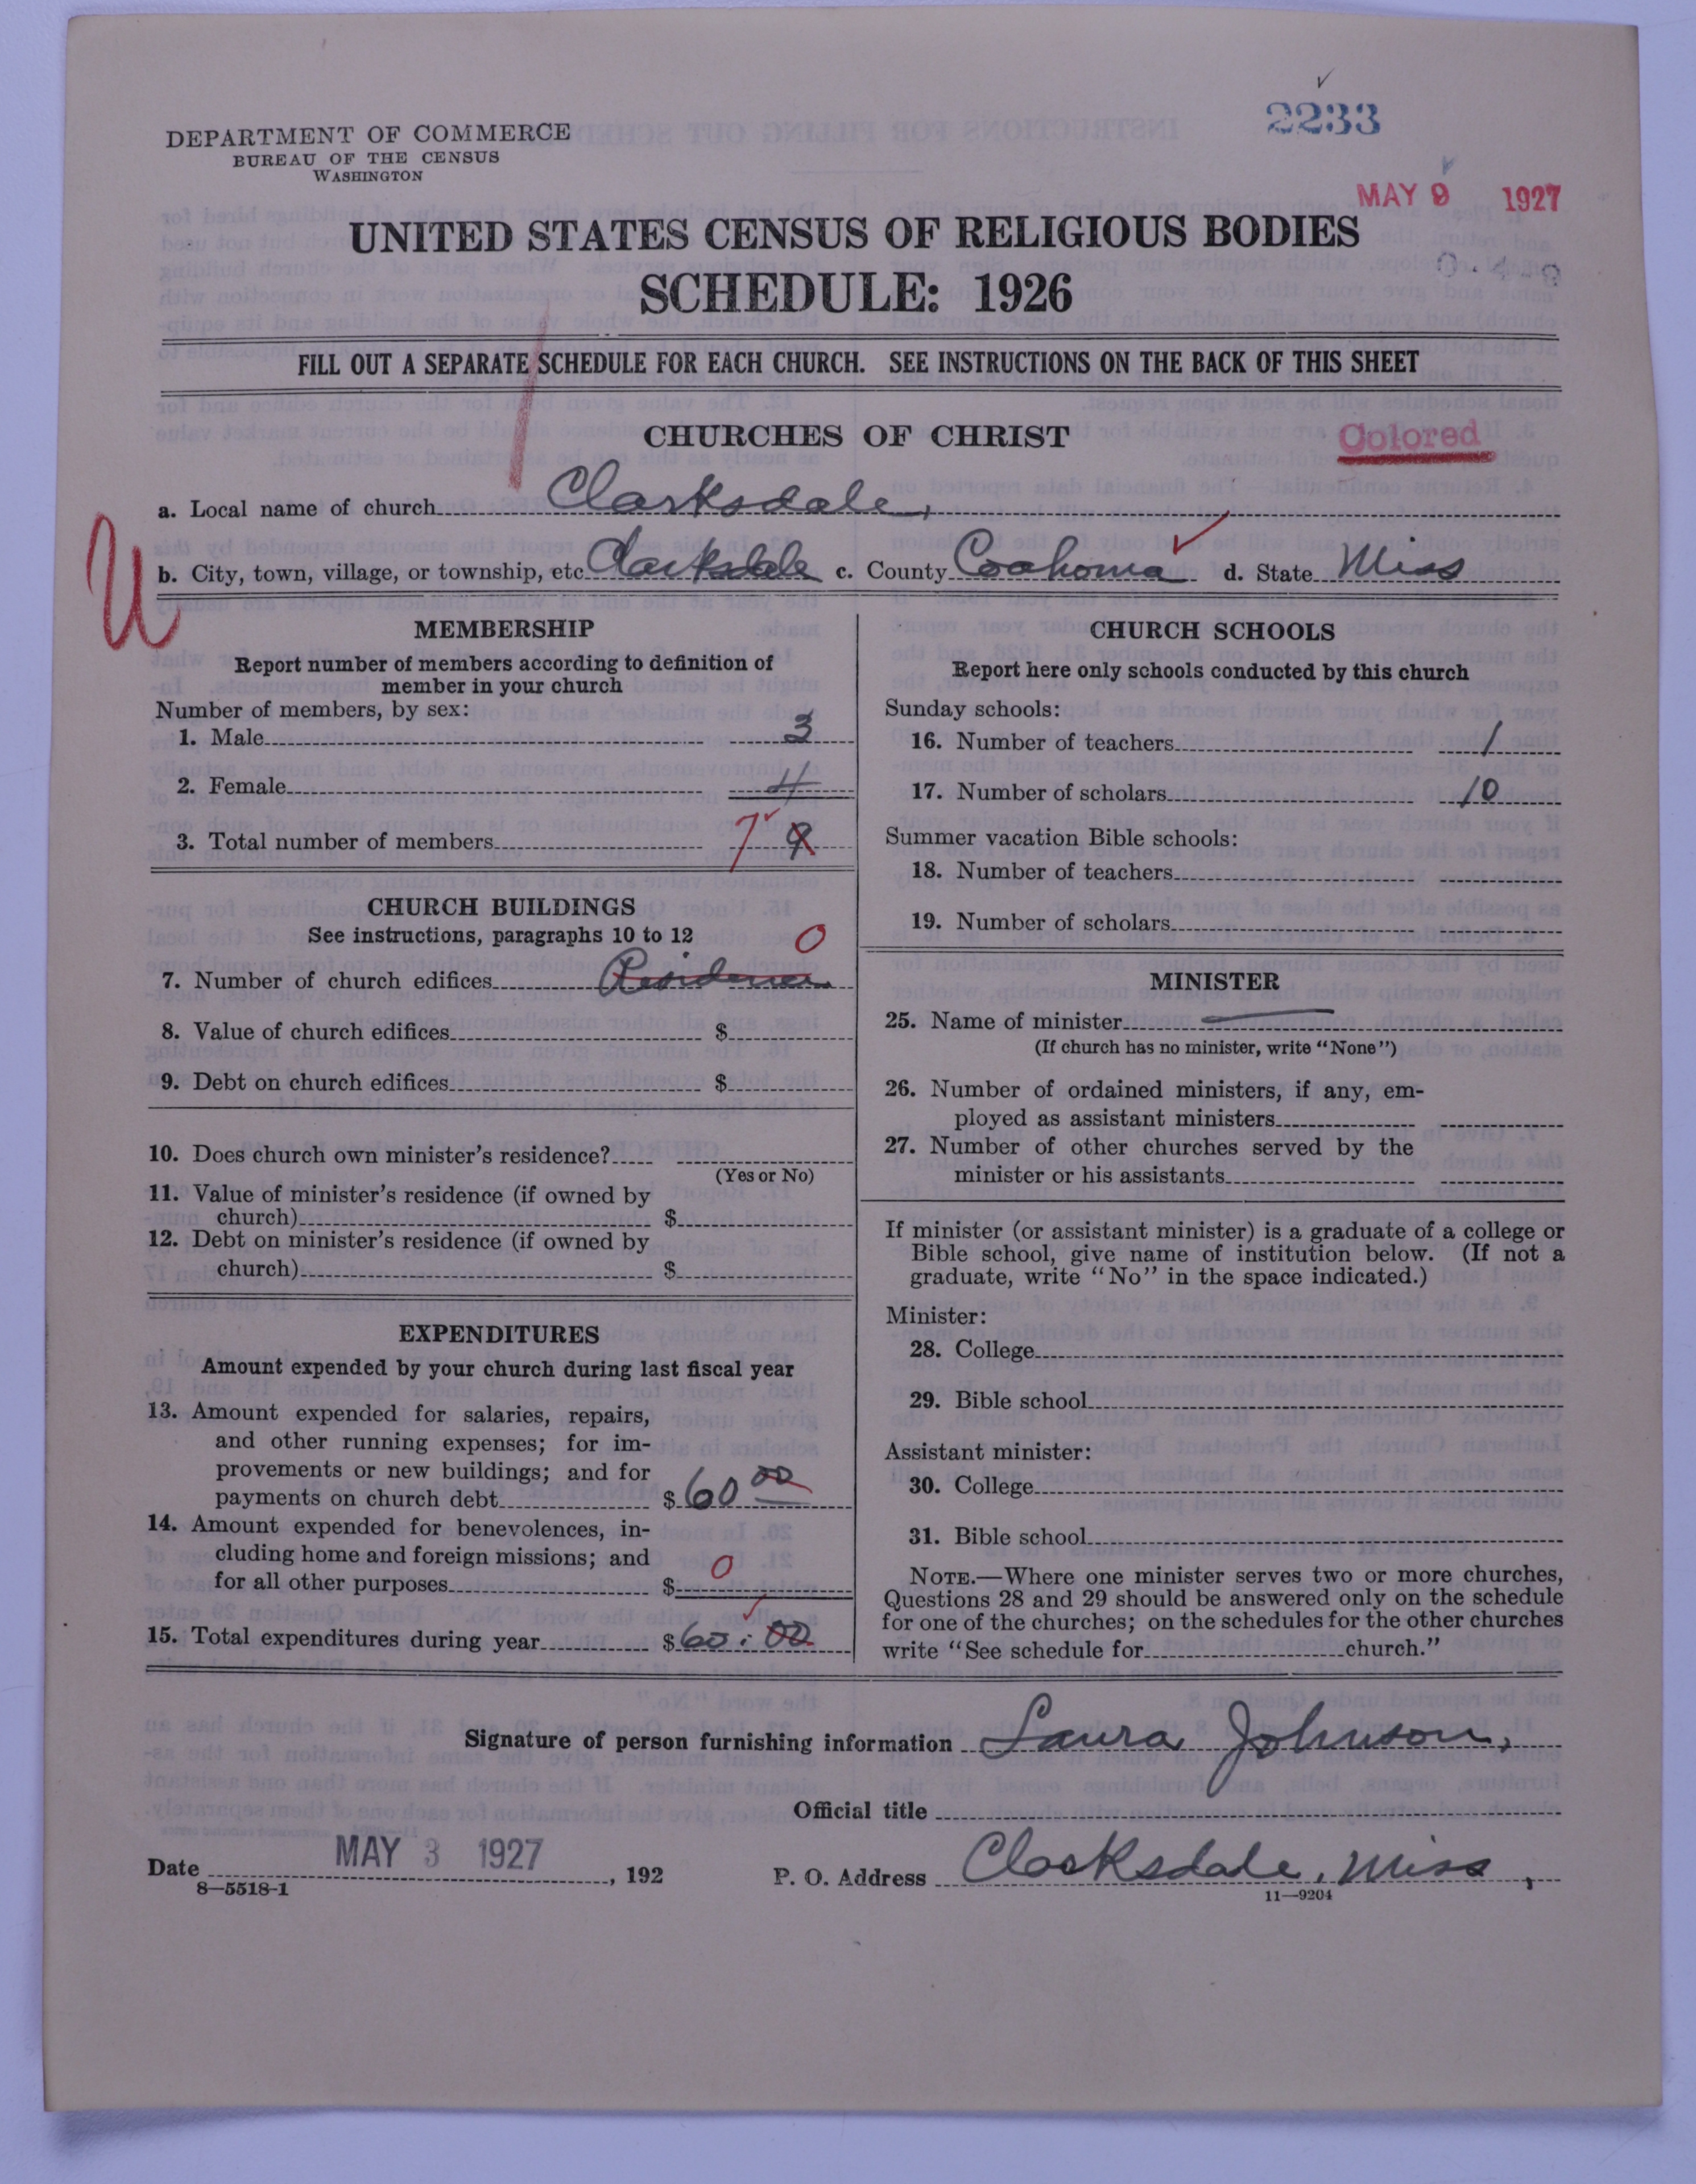 2233
DEPARTMENT OF COMMERCE
BUREAU OF THE CENSUS
WASHINGTON
MAY 9 1927
UNITED STATES CENSUS OF RELIGIOUS BODIES
SCHEDULE: 1926
FILL OUT A SEPARATE SCHEDULE FOR EACH CHURCH. SEE INSTRUCTIONS ON THE BACK OF THIS SHEET
CHURCHES OF CHRIST
Colored
a. Local name of church Clarksdale,
U
b. City, town, village, or township, etc Clarksdale c. County Coahoma d. State Miss
MEMBERSHIP
Report number of members according to definition of
member in your church
Number of members, by sex:
1. Male 3
2. Female 4
3. Total number of members 7 9
CHURCH BUILDINGS
See instructions, paragraphs 10 to 12
0
7. Number of church edifices Residence
8. Value of church edifices $
9. Debt on church edifices $
10. Does church own minister's residence?
(Yes or No)
11. Value of minister's residence (if owned by
church) $
12. Debt on minister's residence (if owned by
church) $
EXPENDITURES
Amount expended by your church during last fiscal year
13. Amount expended for salaries, repairs,
and other running expenses; for im-
provements or new buildings; and for
payments on church debt $ 60 00
14. Amount expended for benevolences, in-
cluding home and foreign missions; and
for all other purposes $ 0
15. Total expenditures during year $ 60.00
CHURCH SCHOOLS
Report here only schools conducted by this church
Sunday schools:
16. Number of teachers 1
17. Number of scholars 10
Summer vacation Bible schools:
18. Number of teachers
19. Number of scholars
MINISTER
25. Name of minister
(If church has no minister, write "None")
26. Number of ordained ministers, if any, em-
ployed as assistant ministers
27. Number of other churches served by the
minister or his assistants
If minister (or assistant minister) is a graduate of a college or
Bible school, give name of institution below. (If not a
graduate, write "No" in the space indicated.)
Minister:
28. College
29. Bible school
Assistant minister:
30. College
31. Bible school
NOTE.—Where one minister serves two or more churches,
Questions 28 and 29 should be answered only on the schedule
for one of the churches; on the schedules for the other churches
write "See schedule for church."
Signature of person furnishing information Laura Johnson,
Official title
Date MAY 3 1927, 192 P. O. Address Clarksdale, Miss,
8—5518-1
11—9204